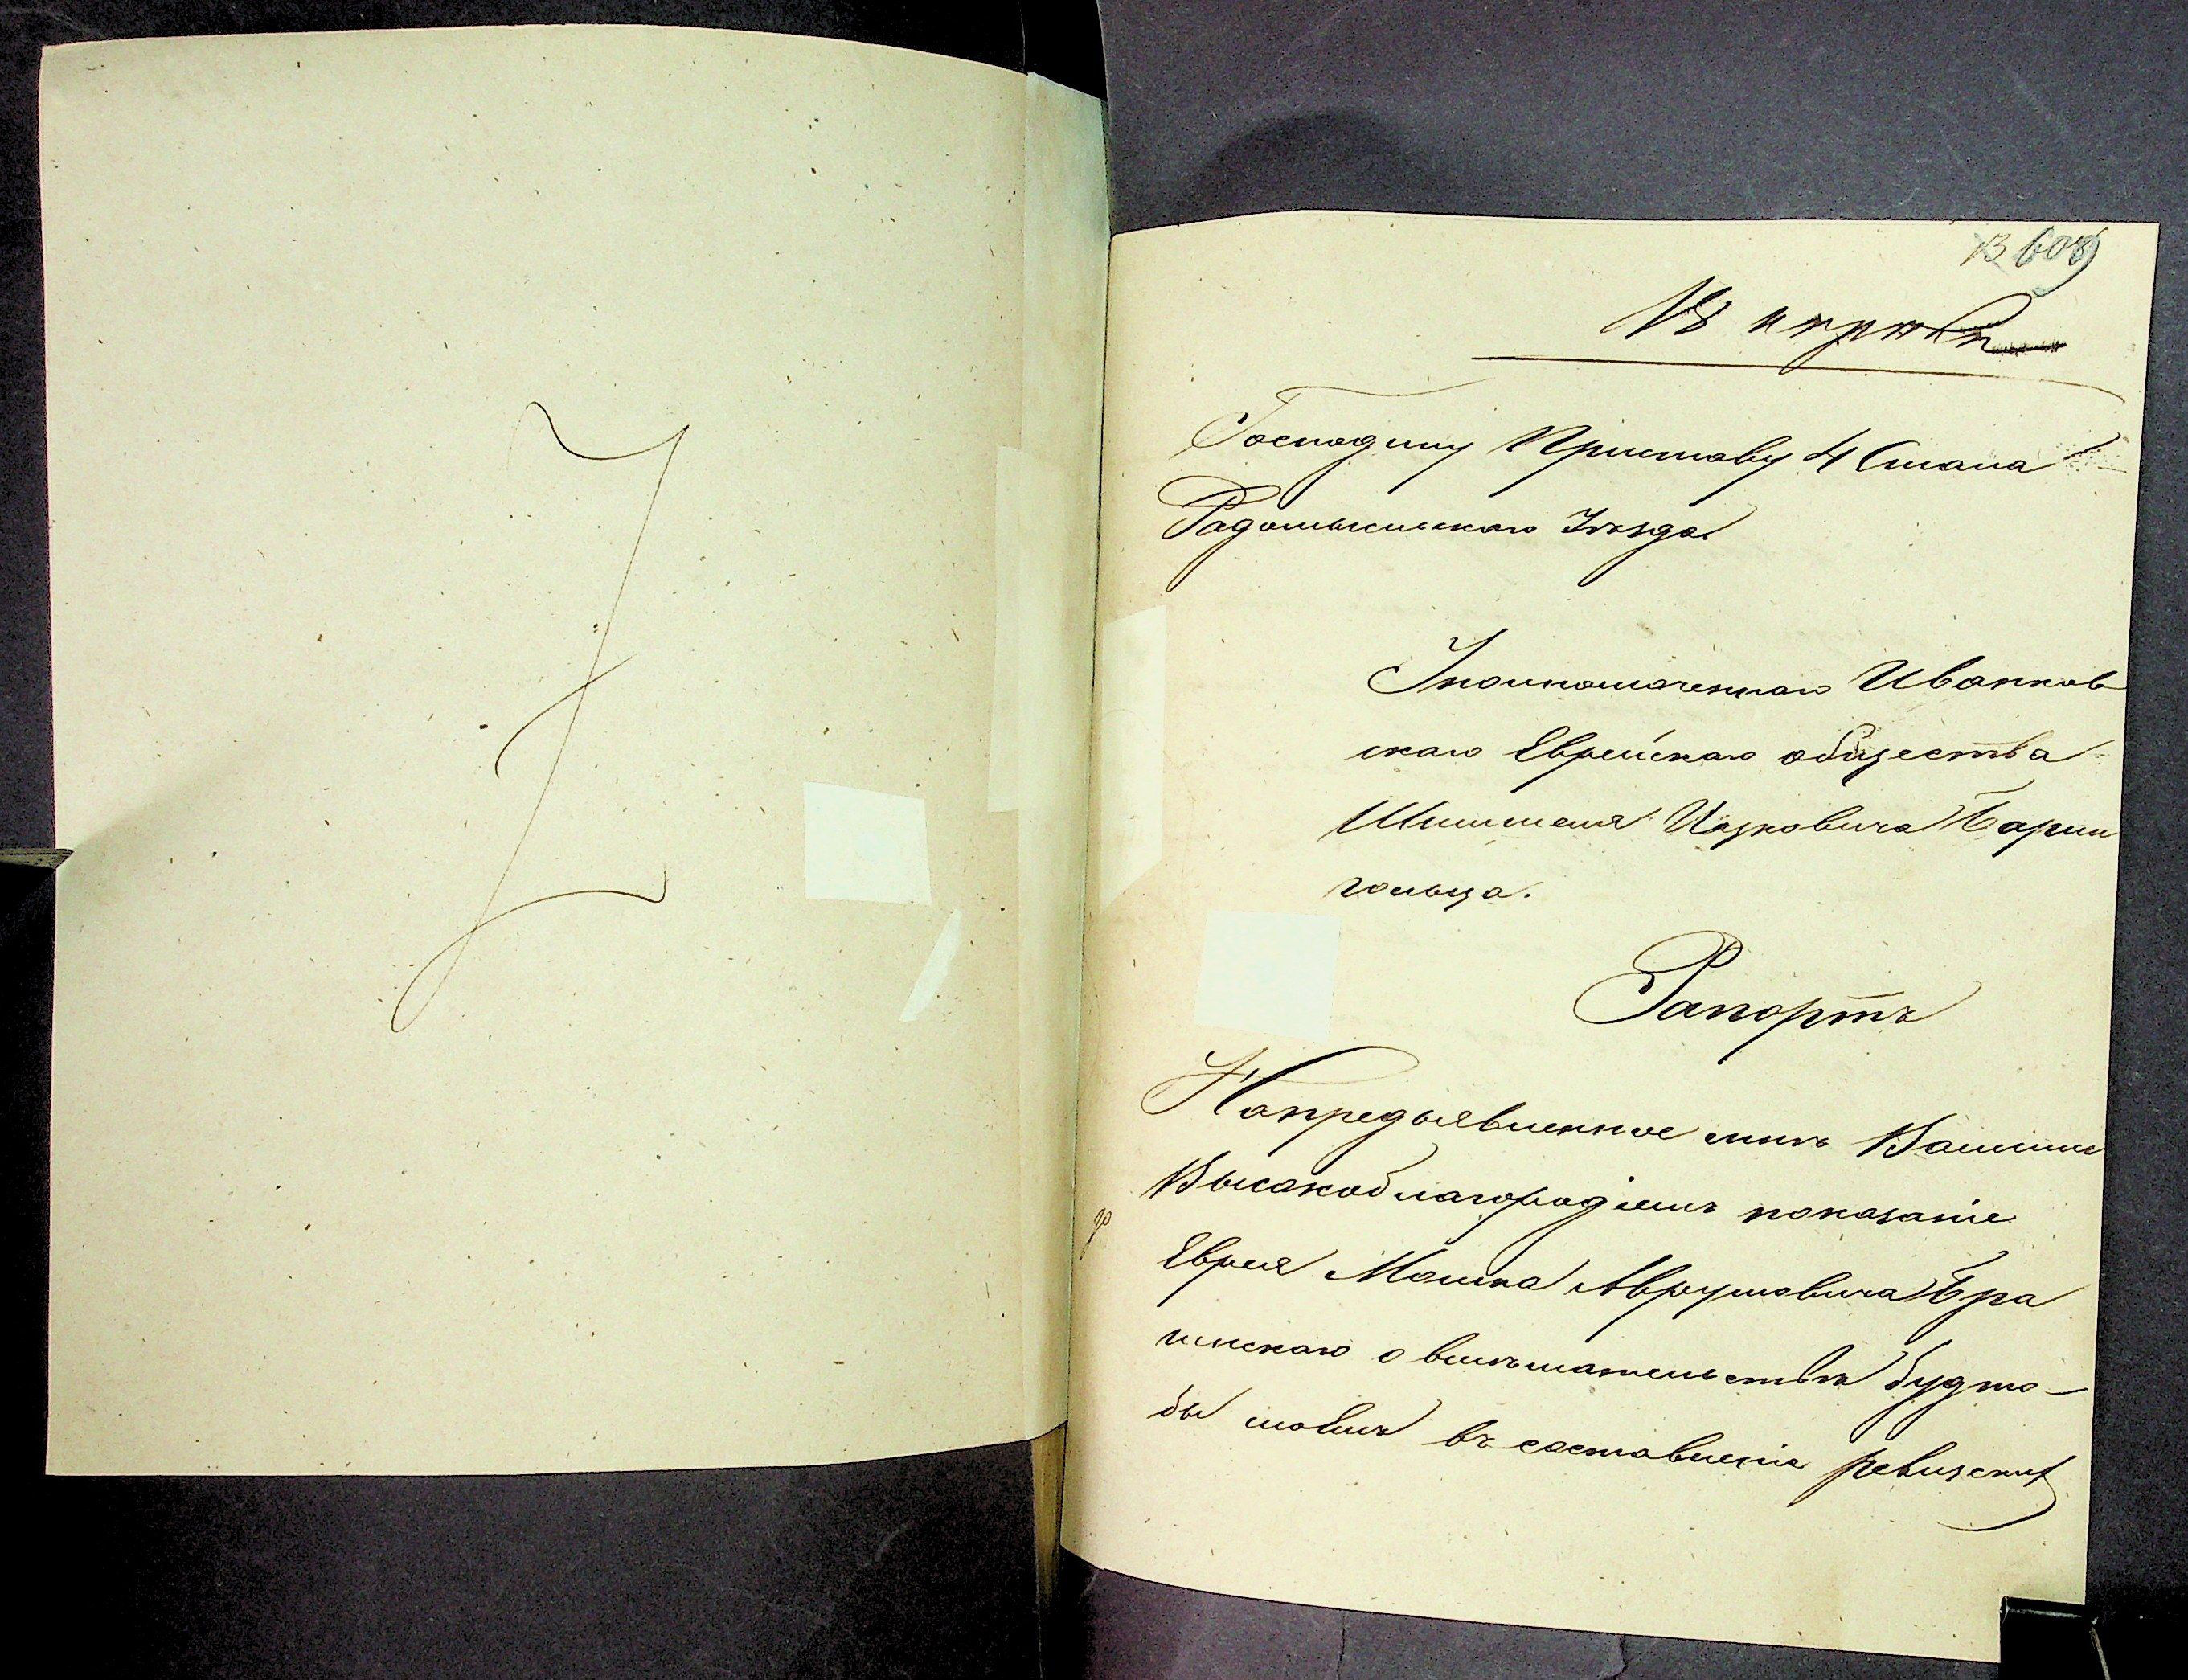 13 608
Господину Приставу 4 Стана
Радомысльскаго Уѣзда
Уполномоченнаго Иванков
скаго Еврейскаго общества
Шмилеля Ицковича Барин
гольца.
Рапортъ
Напредъявленное мнѣ Вашимъ
Высокоблагородіемъ показаніе
Еврея Мошка Аврумовича Бра
гинскаго о вмѣшательствѣ будто-
бы моемъ въ составленіе ревизских